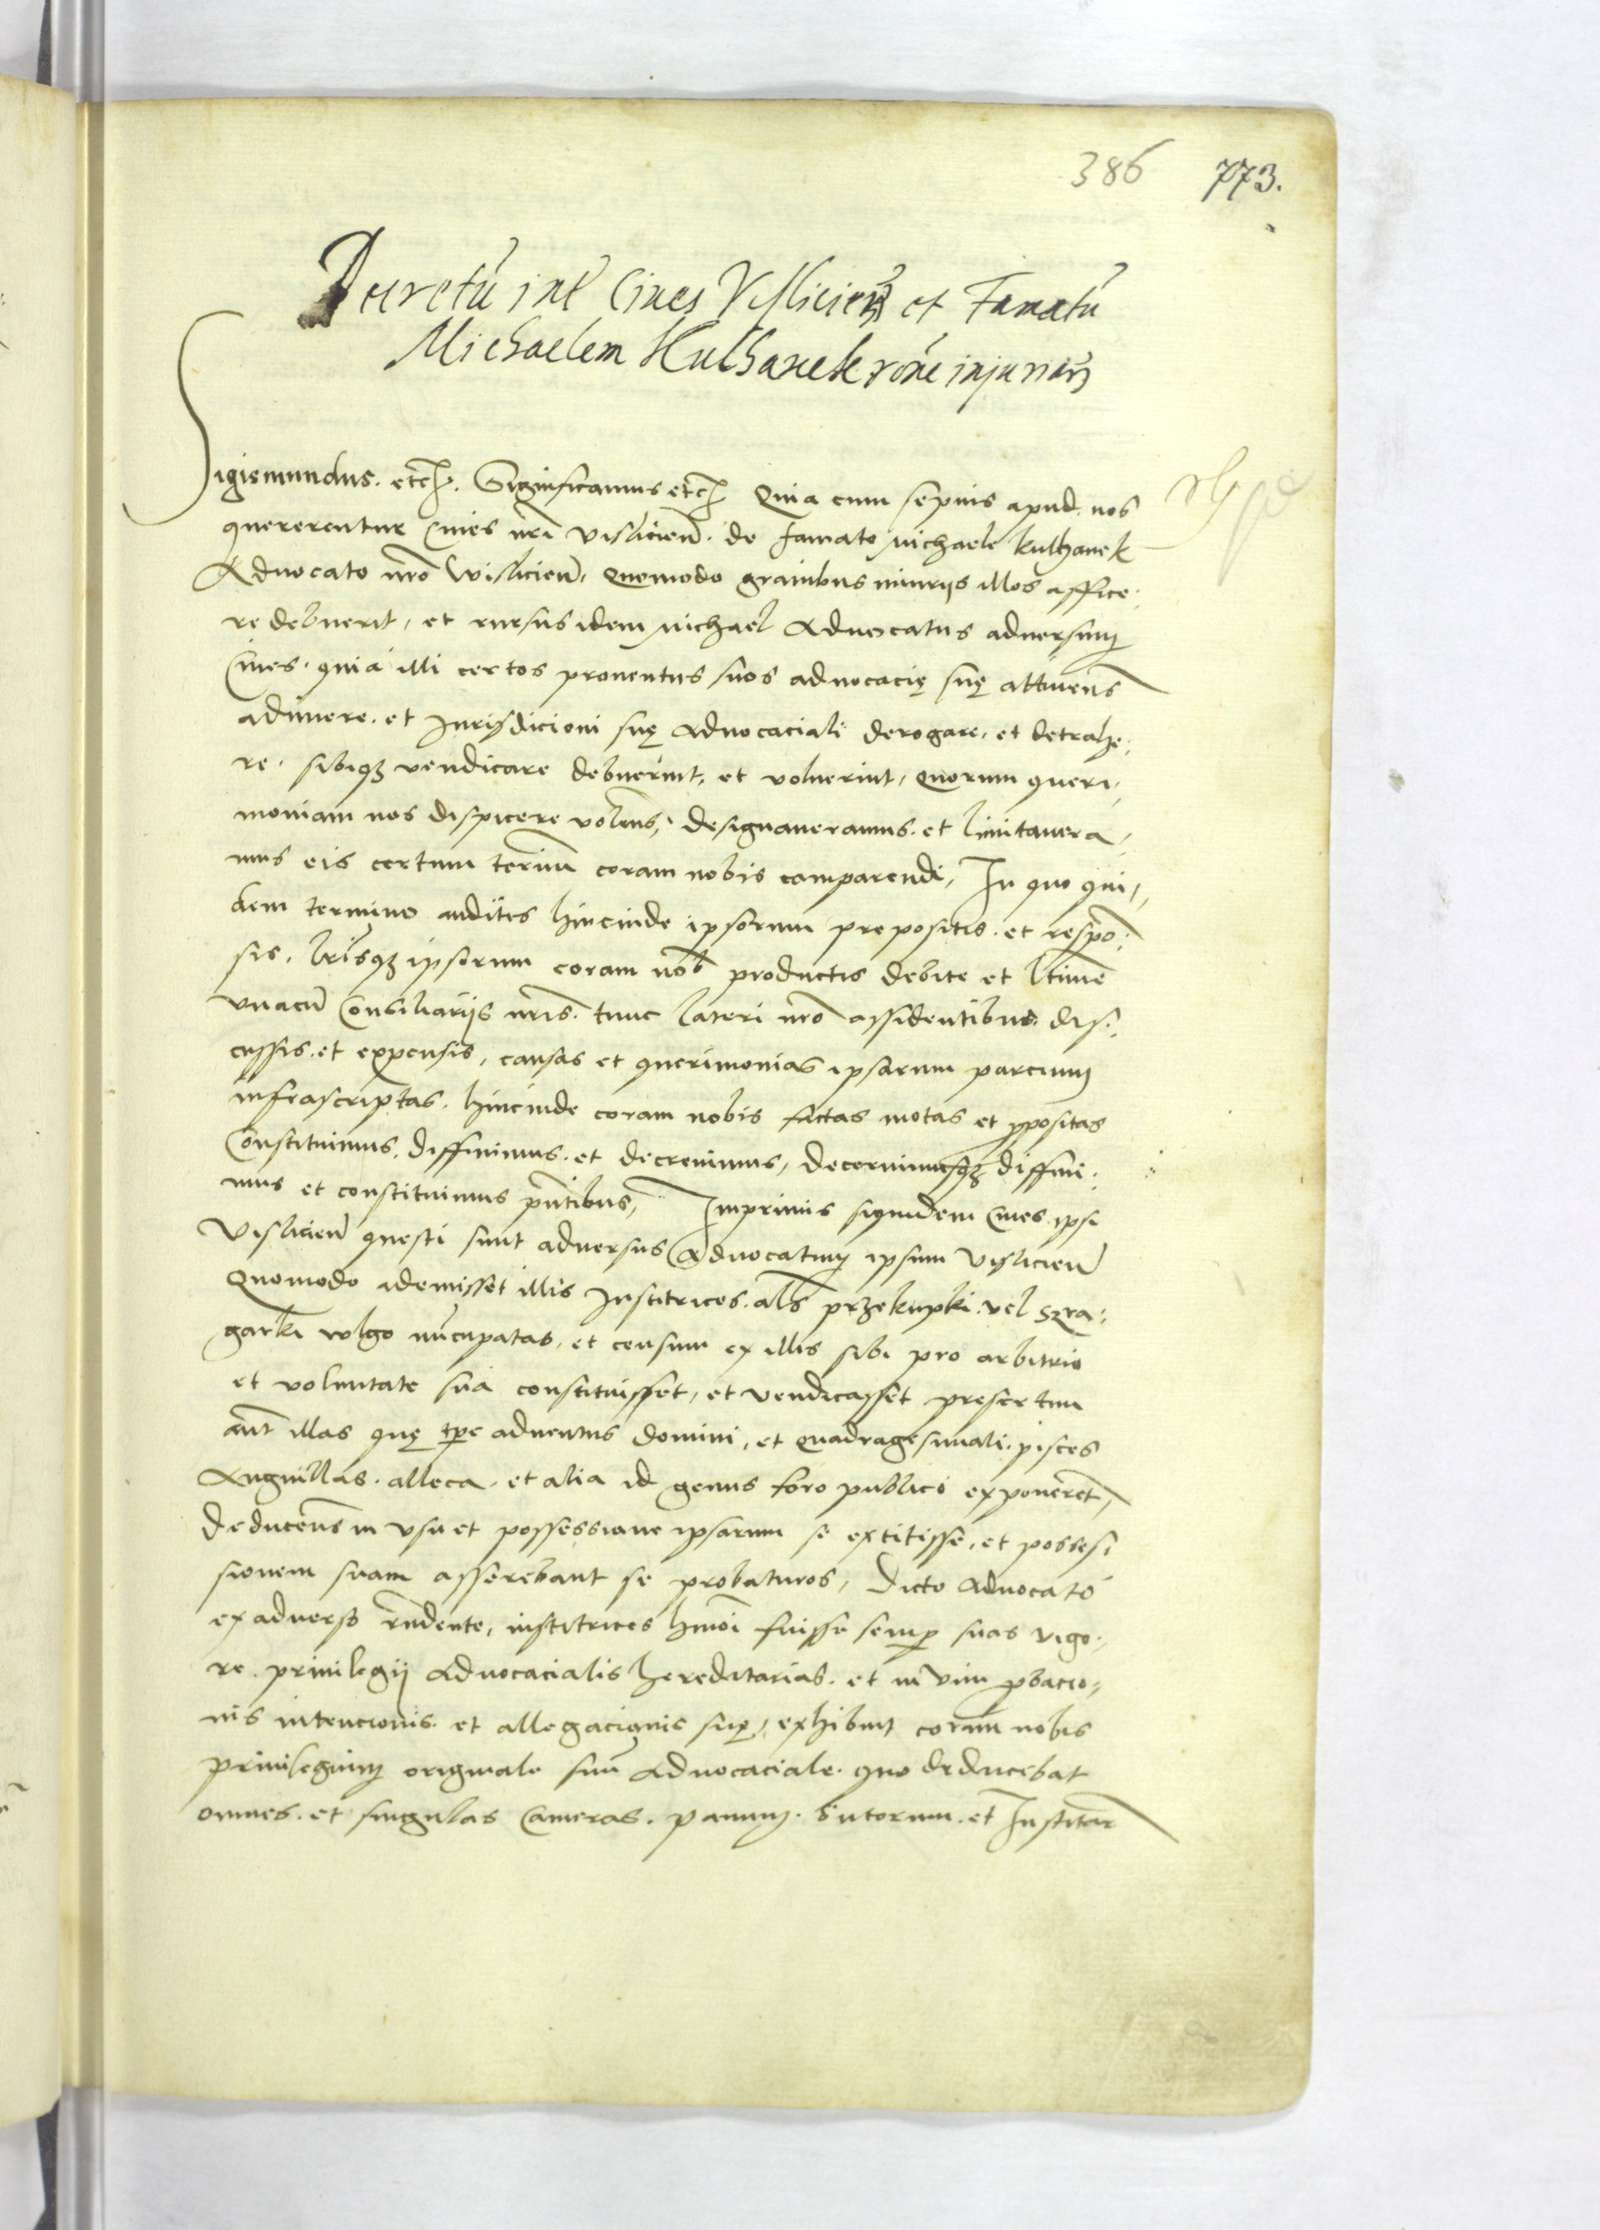 386 773.
Decretū int̄ Cives Visliciēn et Famatū
Michaelem Kulhanek rōne injuriarū
Sigismundus. etc. Significamus etc Quia cum sepius apud nos
quererentur Cives nrī Vislicień. de famato Michaele Kulhanek
Advocato nrō Wislicień, Quomodo gravibus iniuriis illos affice-
re debuerit, et rursus idem Michael Advocatus adversum
Cives. quia illi certos proventus suos advocacię suę attineñs
adimere. et Jurisdicioni suę Advocaciali derogare, et detrahe-
re. sibiq; vendicare debuerint, et voluerint, Quorum queri-
moniam nos dispicere voleñs, designaveramus. et limitavera-
mus eis certum termiñ coram nobis comparendi, In quo qui-
dem termino auditis hincinde ipsorum propositis. et respō-
sis, lrīsq; ipsorum coram nob productis debite et ltīme
unacū Consiliarijs nrīs. tunc lateri nrō assidentibus dis-
cussis. et expensis, causas et querimonias ipsarum parcium
infrascriptas. hincinde coram nobis factas motas et ꝓpositas
Constituimus. diffinimus. et decrevimus, decernimusq; diffini-
mus et constituimus pn̄tibus, Imprimis siquidem Cives ipsi
Vislicień questi sunt adversus Advocatum ipsum Vislicień
Quomodo ademisset illis Institrices. als przekupki. vel szra-
garki wlgo nūcupatas, et censum ex illis sibi pro arbitrio
et voluntate sua constituisset, et vendicasset presertim
aut̄ illas quę tpe adventus domini, et quadragesimali. pisces
Anguillas. alleca. et alia id genus foro publico exponereñt,
deduceñs in usu et possessione ipsarum se extitisse, et posses-
sionem suam asserebant se probaturos, Dicto Advocato
ex adverso rn̄dente, institrices hmōi fuisse semꝑ suas vigo-
re. privilegij Advocacialis hereditarias. et in vim ꝓbacio-
nis intencionis. et allegacionis suę, exhibuit coram nobis
privilegium originale suū Advocaciale. quo deducebat
omnes. et singulas Cameras. panum. Sutorum. et Institar̄